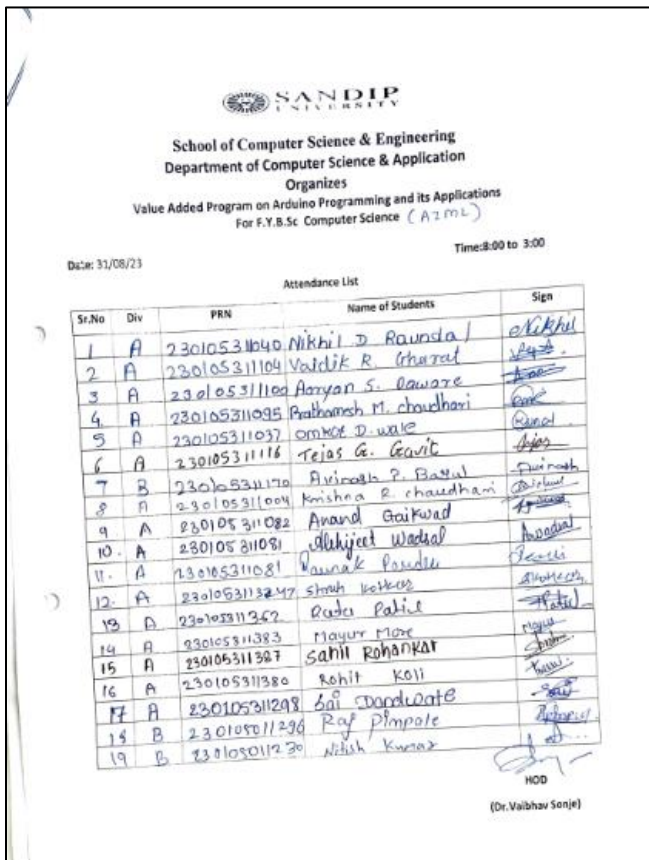 SANDIP
UNIVERSITY
School of Computer Science & Engineering
Department of Computer Science & Application
Organizes
Value Added Program on Arduino Programming and its Applications
For F.Y.B.Sc Computer Science (AIML)
Time:8:00 to 3:00
Date: 31/08/23
Attendance List
Sr.No Div PRN Name of Students Sign
1 A 230105311040 Nikhil D Raundal Nikhil
2 A 230105311104 Vaidik R. Gharat
3 A 230105311100 Aaryan S. Daware
4 A 230105311095 Prathamesh M. chaudhari
5 A 230105311037 omkar D. wale
6 A 230105311116 Tejas G. Gavit Tejas
7 B 230105311170 Avinash P. Avinash
8 A 230105311004 Krishna R. chaudhari
9 A 230105311082 Anand Gaikwad
10. A 230105311081 Abhijeet Wadsal Awadsal
11. A 230105311081
12. A
13 A 230105311362 Patil Patil
14 A 230105311383 Mayur More Mayur
15 A 230105311327 Sahil Rohankar
16 A 230105311380 Rohit Koli
17 A 230105311298 Sai Dandwate Sai
18 B 230105011296 Raj Pimpale
19 B 230105011230 Nitish Kumar
HOD
(Dr.Vaibhav Sonje)